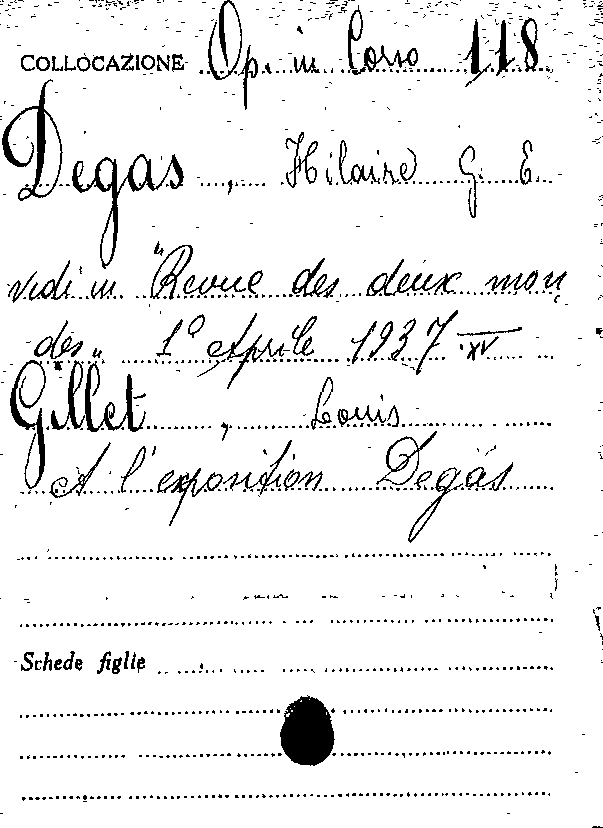 COLLOCAZIONE Op. in Corso 118
Degas, Hilaire G. E.
vedi in "Revue des deux mon
des„ 1° Aprile 1937 XV
Gillet, Louis
A l'exposition Degas
Schede figlie